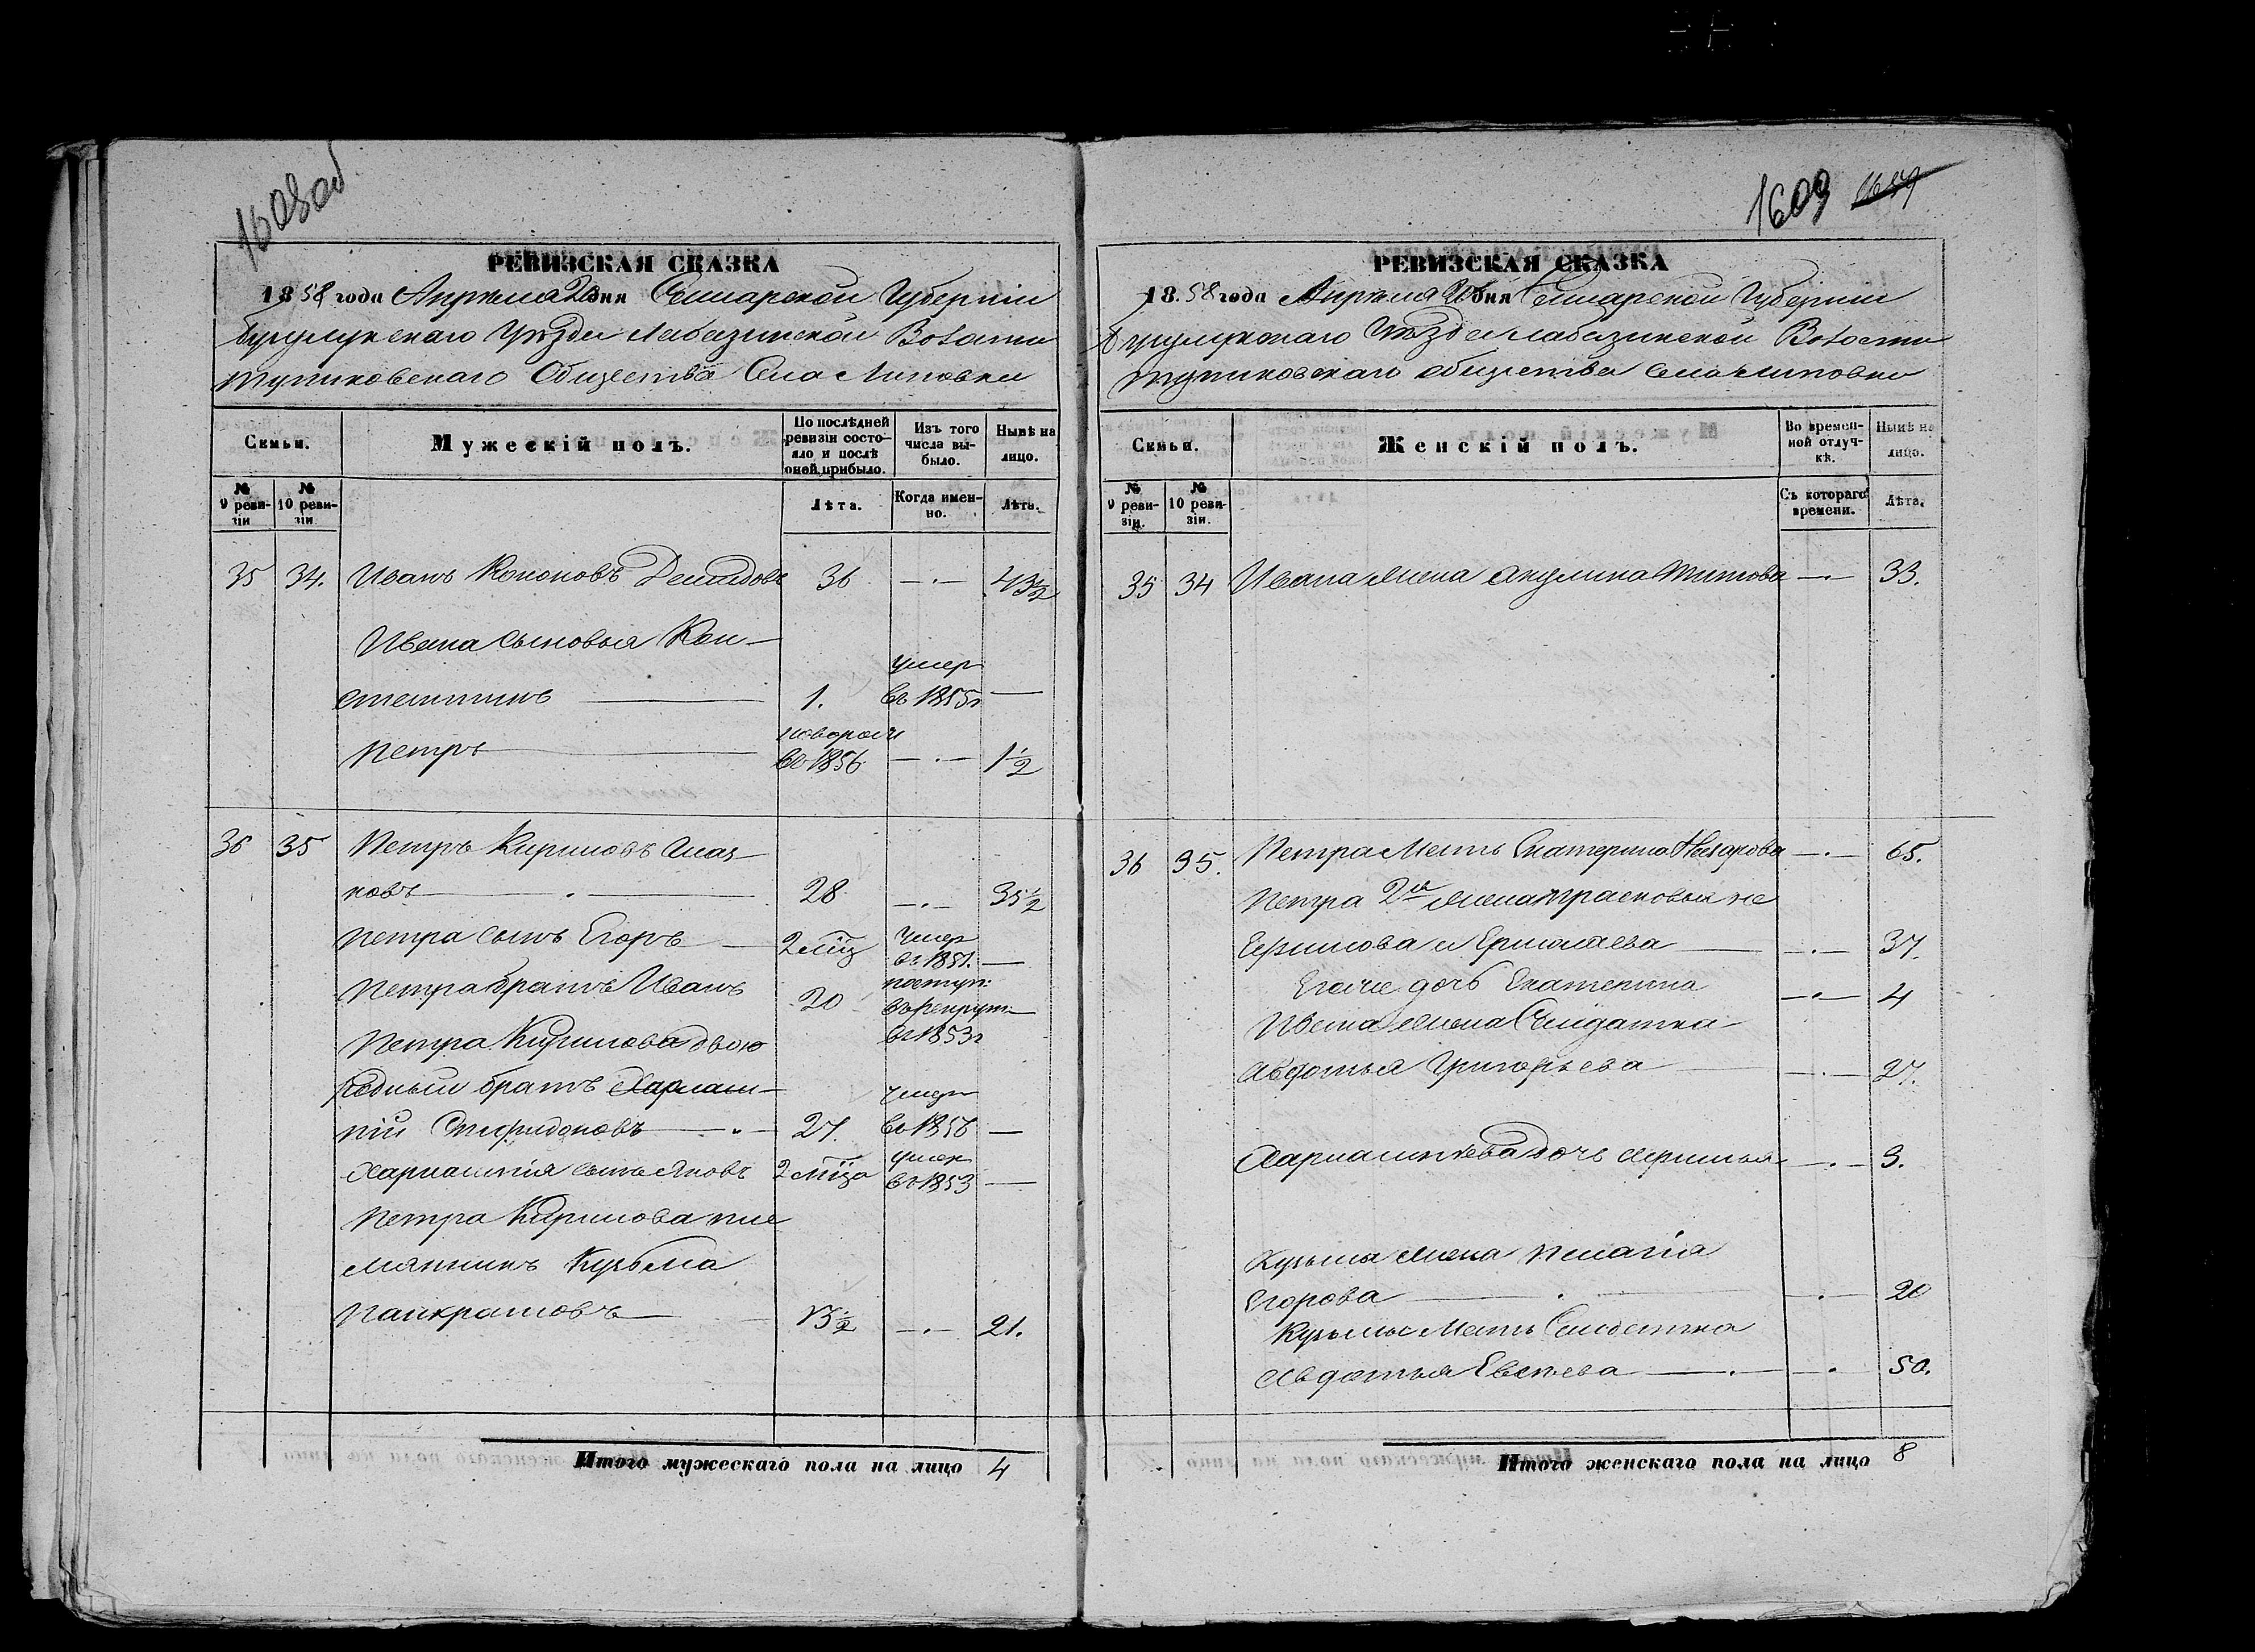 1608об
РЕВИЗСКАЯ СКАЗКА
1858 года Апреля 2 дня Самарской Губерніи
Бузулукскаго Уѣзда Лабазинской Волости
Тупиковскаго Общества Села Липовки
Семьи.
Мужескій полъ.
По послѣдней ревизіи состояло и послѣ оной прибыло.
Изъ того числа выбыло.
Нынѣ на лицо.
№ 9 ревизіи
№ 10 ревизіи
Лѣта.
Когда именно.
Лѣта.
35 34. Иванъ Кононовъ Демидовъ 36 —·— 43½
Ивана сыновья Кон-
стантинъ — 1. умер въ 1855г —
Петръ — новорож въ 1856 —·— 1½
36 35 Петръ Кириловъ
новъ — 28 —·— 35½
Петра сынъ Егоръ — 2 мѣц умер въ 1851. —
Петра братъ Иванъ 20 поступ: въ рекрут— въ 1853г
Петра Кирилова двою
родный братъ Харлам-
пій Спиридоновъ — 27. умер въ 1856 —
Харлампія сынъ Яковъ 2 мѣца умер въ 1853 —
Петра Кирилова пле
мянникъ Кузьма
Панкратовъ — 13½ —·— 21.
Итого мужескаго пола на лицо 4
1609
РЕВИЗСКАЯ СКАЗКА
1858 года Апреля дня Самарской Губерніи
Бузулукскаго Уѣзда Лабазинской Волости
Тупиковскаго общества села Липовки
Семьи.
Женскій полъ.
Во временной отлучкѣ.
Нынѣ на лицо.
№ 9 ревизіи.
№ 10 ревизіи.
Съ котораго времени.
Лѣта.
35 34 Ивана жена Акулина Титова —·— 33.
36 35. Петра Мать Екатерина Назарова —·— 65.
Петра 2я жена Прасковья не
Ермолаева — —·— 37.
дочь Екатерина —·— 4
Ивана жена Солдатка
Авдотья Григорьева — —·— 27.
Харлампіева дочь —·— 9.
Кузьмы жена Пелагія
Егорова — —·— 20
Кузьмы Мать Солдатка
Авдотья — —·— 50.
Итого женскаго пола на лицо 8